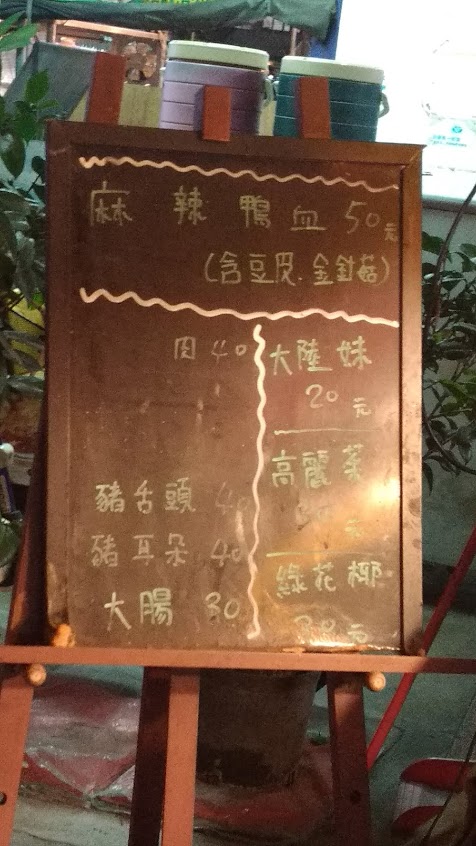 麻辣鴨血50元
(含豆皮、金針菇)
肉40
豬舌頭40
豬耳朵40
大腸30
大陸妹
20元
高麗菜
元
綠花椰
30元